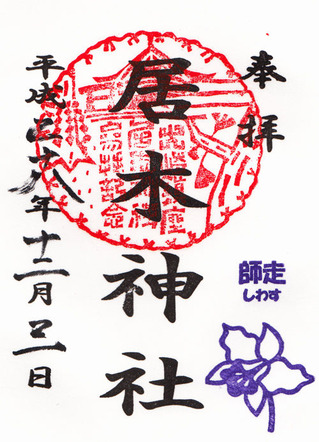 奉拝
師走
しわす
居木神社
平成二十八年十二月 日